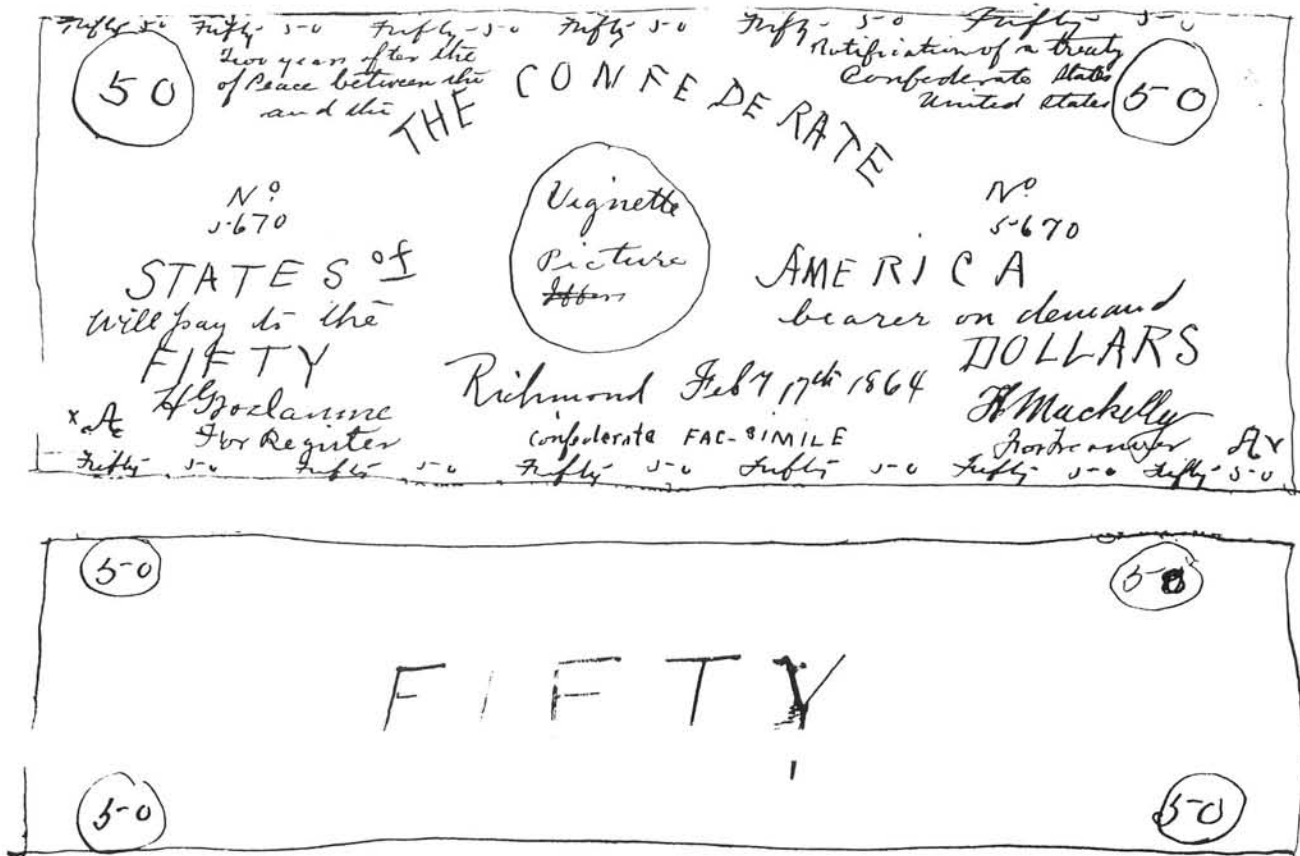 Fifty 50 Fifty 50 Fifty 50 Fifty 50 Fifty 50 Fifty 50
50
Two years after the
of Peace between the
and the
Ratification of a treaty
Confederate States
United States
50
THE CONFEDERATE
No
5670
Vignette
Picture
No
5670
STATES of
AMERICA
Will pay to the
bearer on demand
FIFTY
DOLLARS
Richmond Feby 17th 1864
For Register
confederate FAC-SIMILE
For Treasurer
x A
A x
Fifty 50 Fifty 50 Fifty 50 Fifty 50 Fifty 50 Fifty 50
50
50
FIFTY
50
50